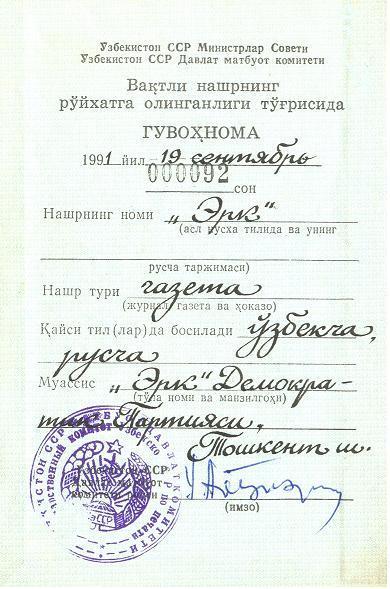 Ўзбекистон ССР Министрлар Совети
Ўзбекистон ССР Давлат матбуот комитети
Вақтли нашрнинг
рўйхатга олинганлиги тўғрисида
ГУВОҲНОМА
1991 йил 19 сентябрь
000092
сон
Нашрнинг номи „Эрк“
(асл нусха тилида ва унинг
русча таржимаси)
Нашр тури газета
(журнал, газета ва ҳоказо)
Қайси тил (лар)да босилади ўзбекча,
русча
Муассис „Эрк“ Демокра-
(тўла номи ва манзилгоҳи)
тик Партияси,
Тошкент ш.
Ўзбекистон ССР
Давлат матбуот
комитети раиси
(имзо)